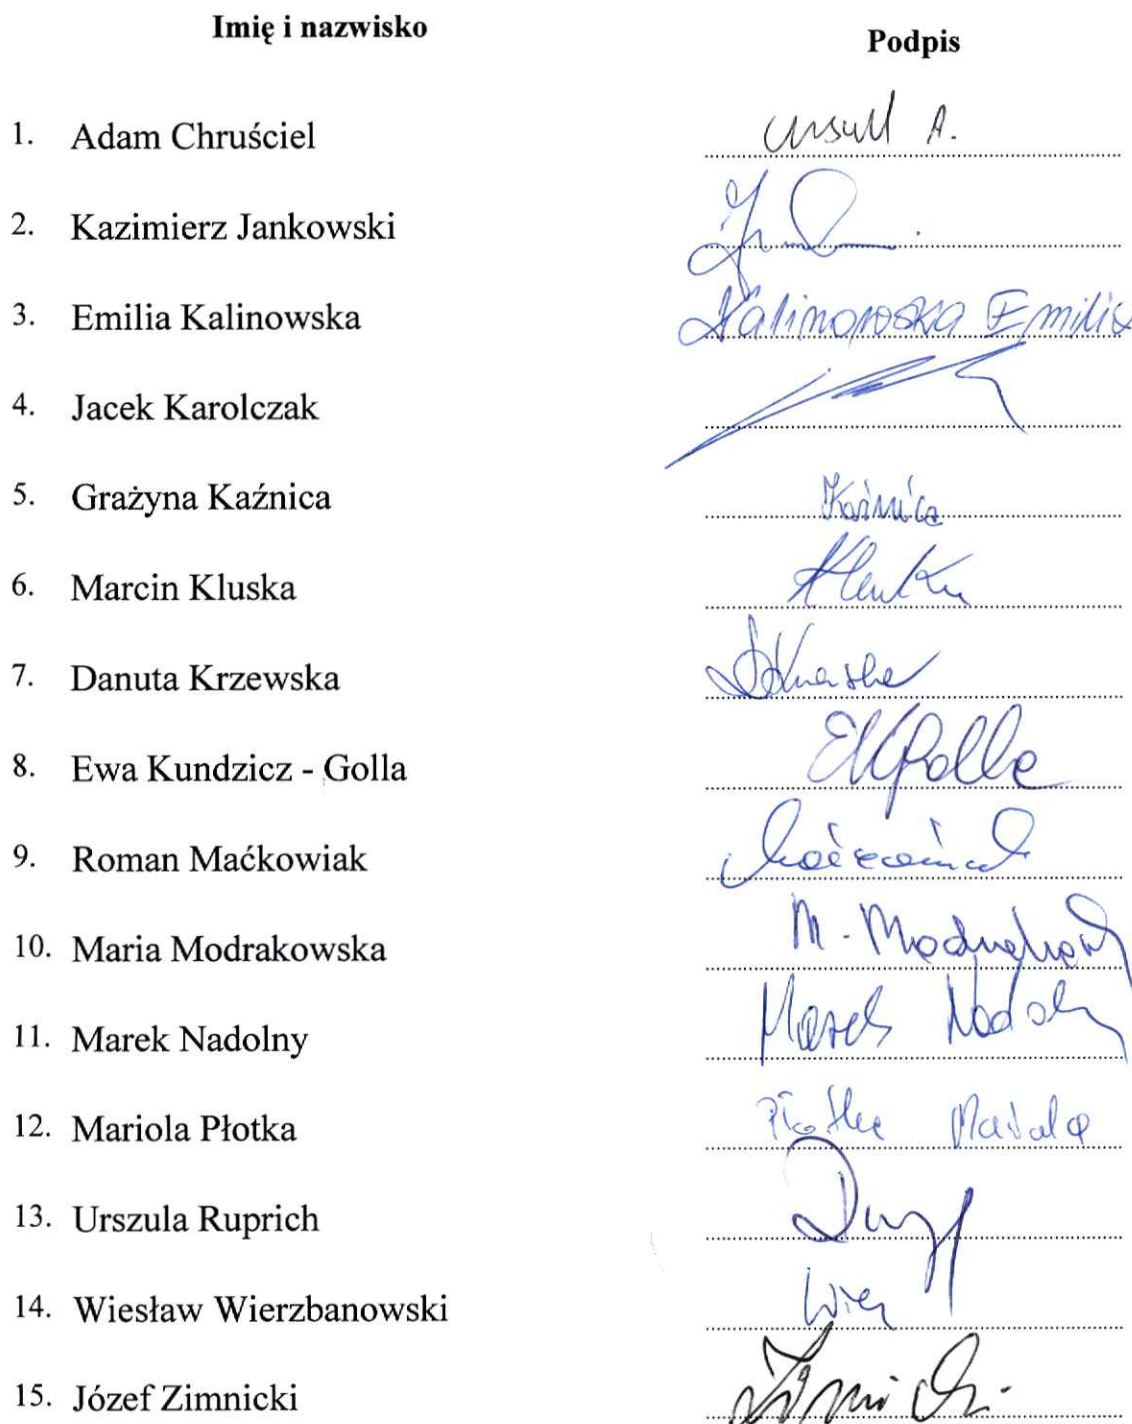 Imię i nazwisko Podpis
1. Adam Chruściel
2. Kazimierz Jankowski
3. Emilia Kalinowska Kalinowska Emilia
4. Jacek Karolczak
5. Grażyna Kaźnica Kaźnica
6. Marcin Kluska
7. Danuta Krzewska
8. Ewa Kundzicz - Golla EKGolla
9. Roman Maćkowiak
10. Maria Modrakowska M. Modrakowsk
11. Marek Nadolny Marek Nadolny
12. Mariola Płotka Płotka Mariola
13. Urszula Ruprich
14. Wiesław Wierzbanowski
15. Józef Zimnicki